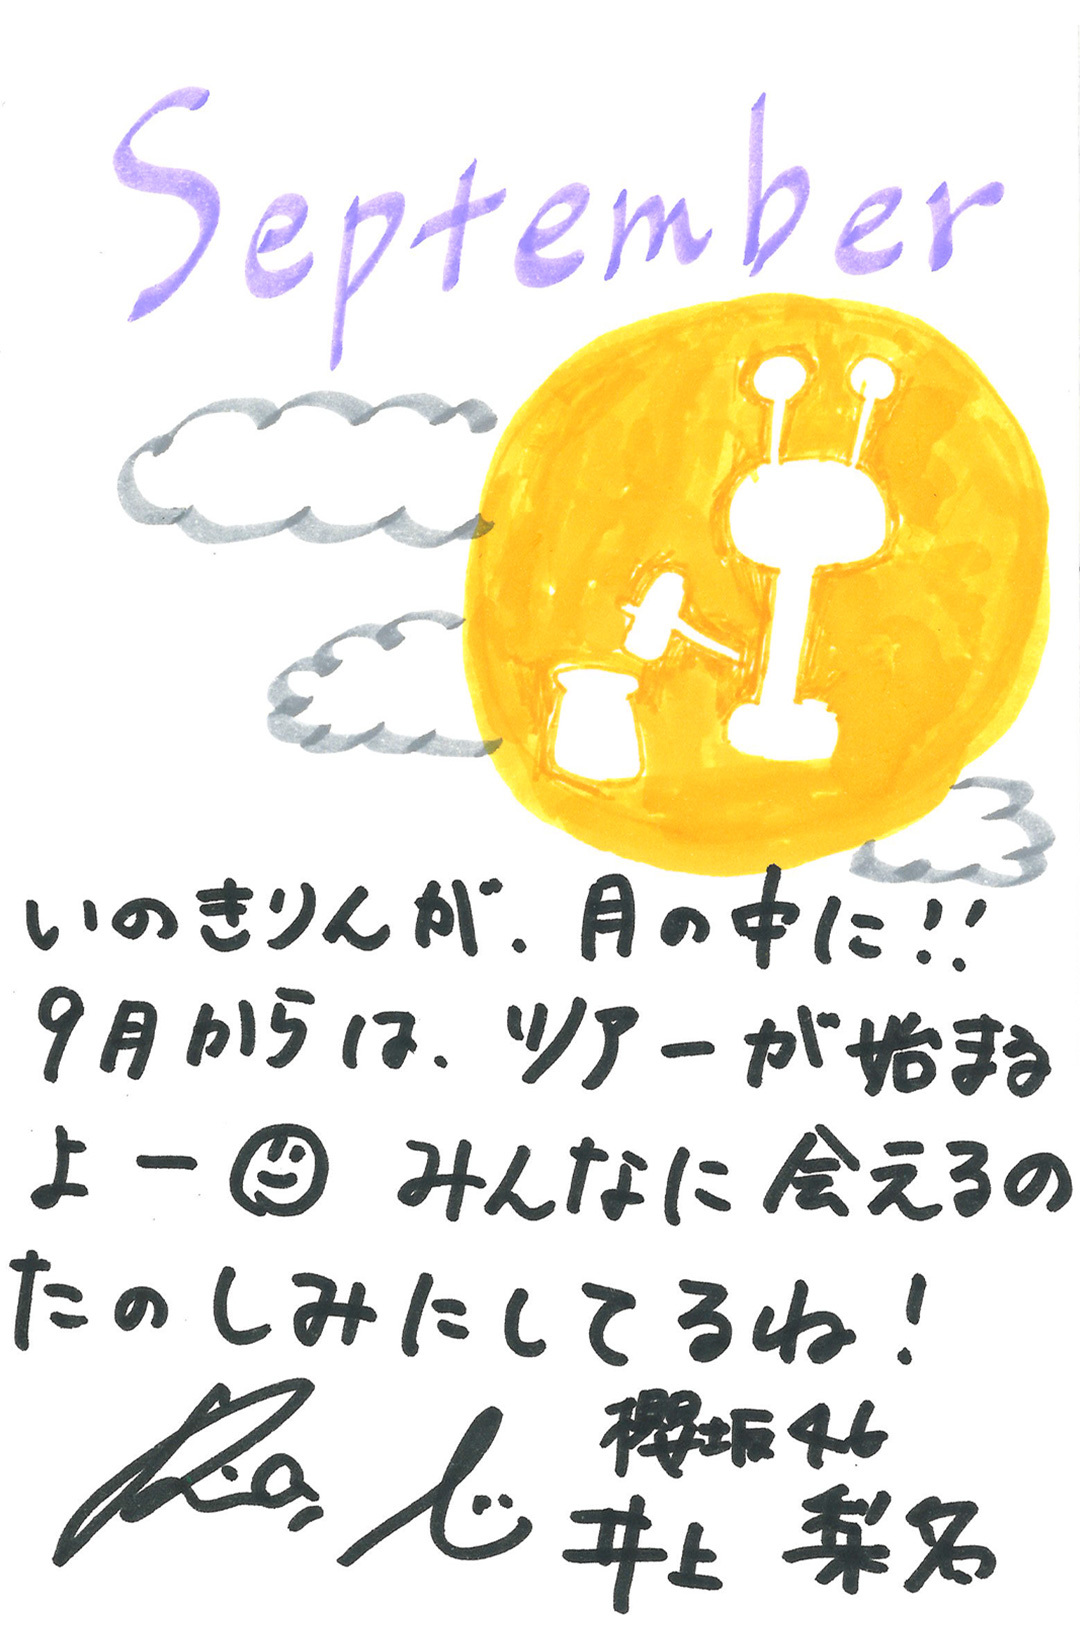 September
いのきりんが、月の中に!!
9月からは、ツアーが始まる
よー みんなに会えるの
たのしみにしてるね!
櫻坂46
井上 梨名